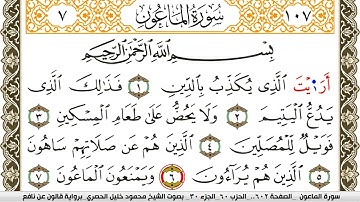 ٧ سُورَةُ الْمَاعُونِ ١٠٧
بِسْمِ اللَّهِ الرَّحْمَٰنِ الرَّحِيمِ
أَرَٰيْتَ الَّذِى يُكَذِّبُ بِالدِّينِ ١ فَذَٰلِكَ الَّذِى
يَدُعُّ الْيَتِيمَ ٢ وَلَا يَحُضُّ عَلَىٰ طَعَامِ الْمِسْكِينِ ٣
فَوَيْلٌ لِّلْمُصَلِّينَ ٤ الَّذِينَ هُمْ عَن صَلَاتِهِمْ سَاهُونَ
٥ الَّذِينَ هُمْ يُرَآءُونَ ٦ وَيَمْنَعُونَ الْمَاعُونَ ٧
سورة الماعون - الصفحة ٦٠٢ - الحزب ٦٠ الجزء ٣٠ بصوت الشيخ محمود خليل الحصري برواية قالون عن نافع